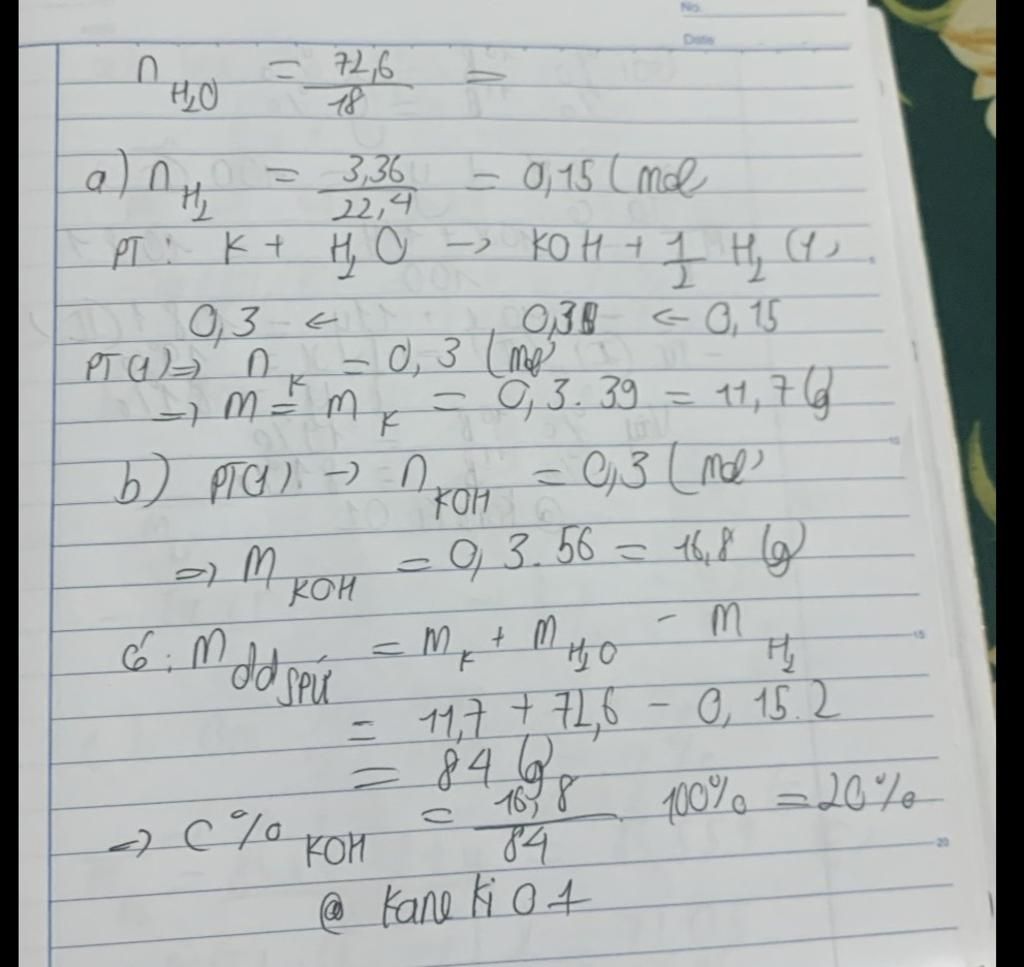 No.
Date
n H₂O = 72,6/18 =
a) n H₂ = 3,36/22,4 = 0,15 (mol
PT: K + H₂O → KOH + 1/2 H₂ (1)
0,3 ← 0,3 ← 0,15
PT(1) ⇒ n K = 0,3 (mol)
⇒ m = m K = 0,3.39 = 11,7 (g)
b) PT(1): → n KOH = 0,3 (mol)
⇒ m KOH = 0,3.56 = 16,8 (g)
Có: m dd spứ = m K + m H₂O - m H₂
= 11,7 + 72,6 - 0,15.2
= 84 (g)
→ C% KOH = 16,8/84 . 100% = 20%
@ Kane Ki 01